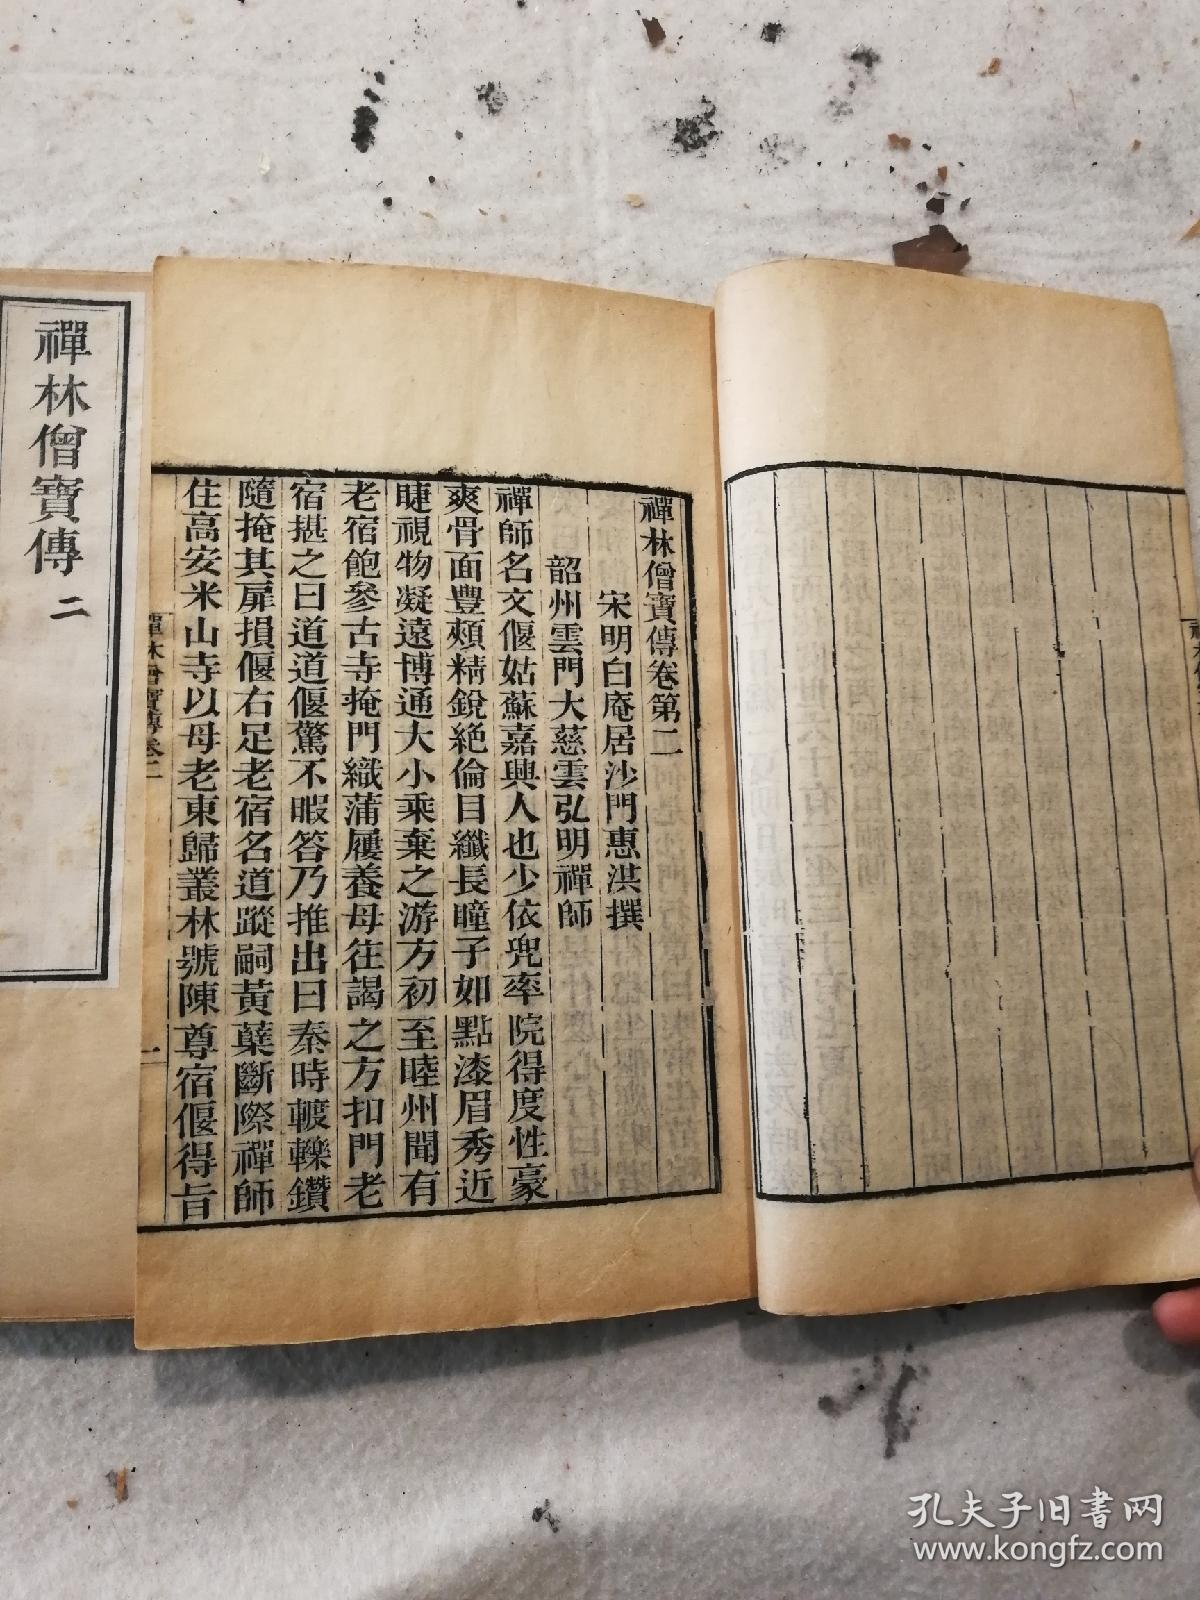 禪林僧寶傳卷第二
宋明白庵居沙門惠洪撰
韶州雲門大慈雲弘明禪師
禪師名文偃姑蘇嘉興人也少依兜率院得度性豪
爽骨面豐頰精銳絶倫目纖長瞳子如點漆眉秀近
睫視物凝遠博通大小乘棄之游方初至睦州聞有
老宿飽參古寺掩門織蒲屨養母往謁之方扣門老
宿搊之曰道道偃驚不暇答乃推出曰秦時𨍏轢鑽
隨掩其扉損偃右足老宿名道蹤嗣黃蘗斷際禪師
住高安米山寺以母老東歸叢林號陳尊宿偃得旨
禪林僧寶傳卷二
一
禪林僧寶傳 二
孔夫子旧书网
www.kongfz.com